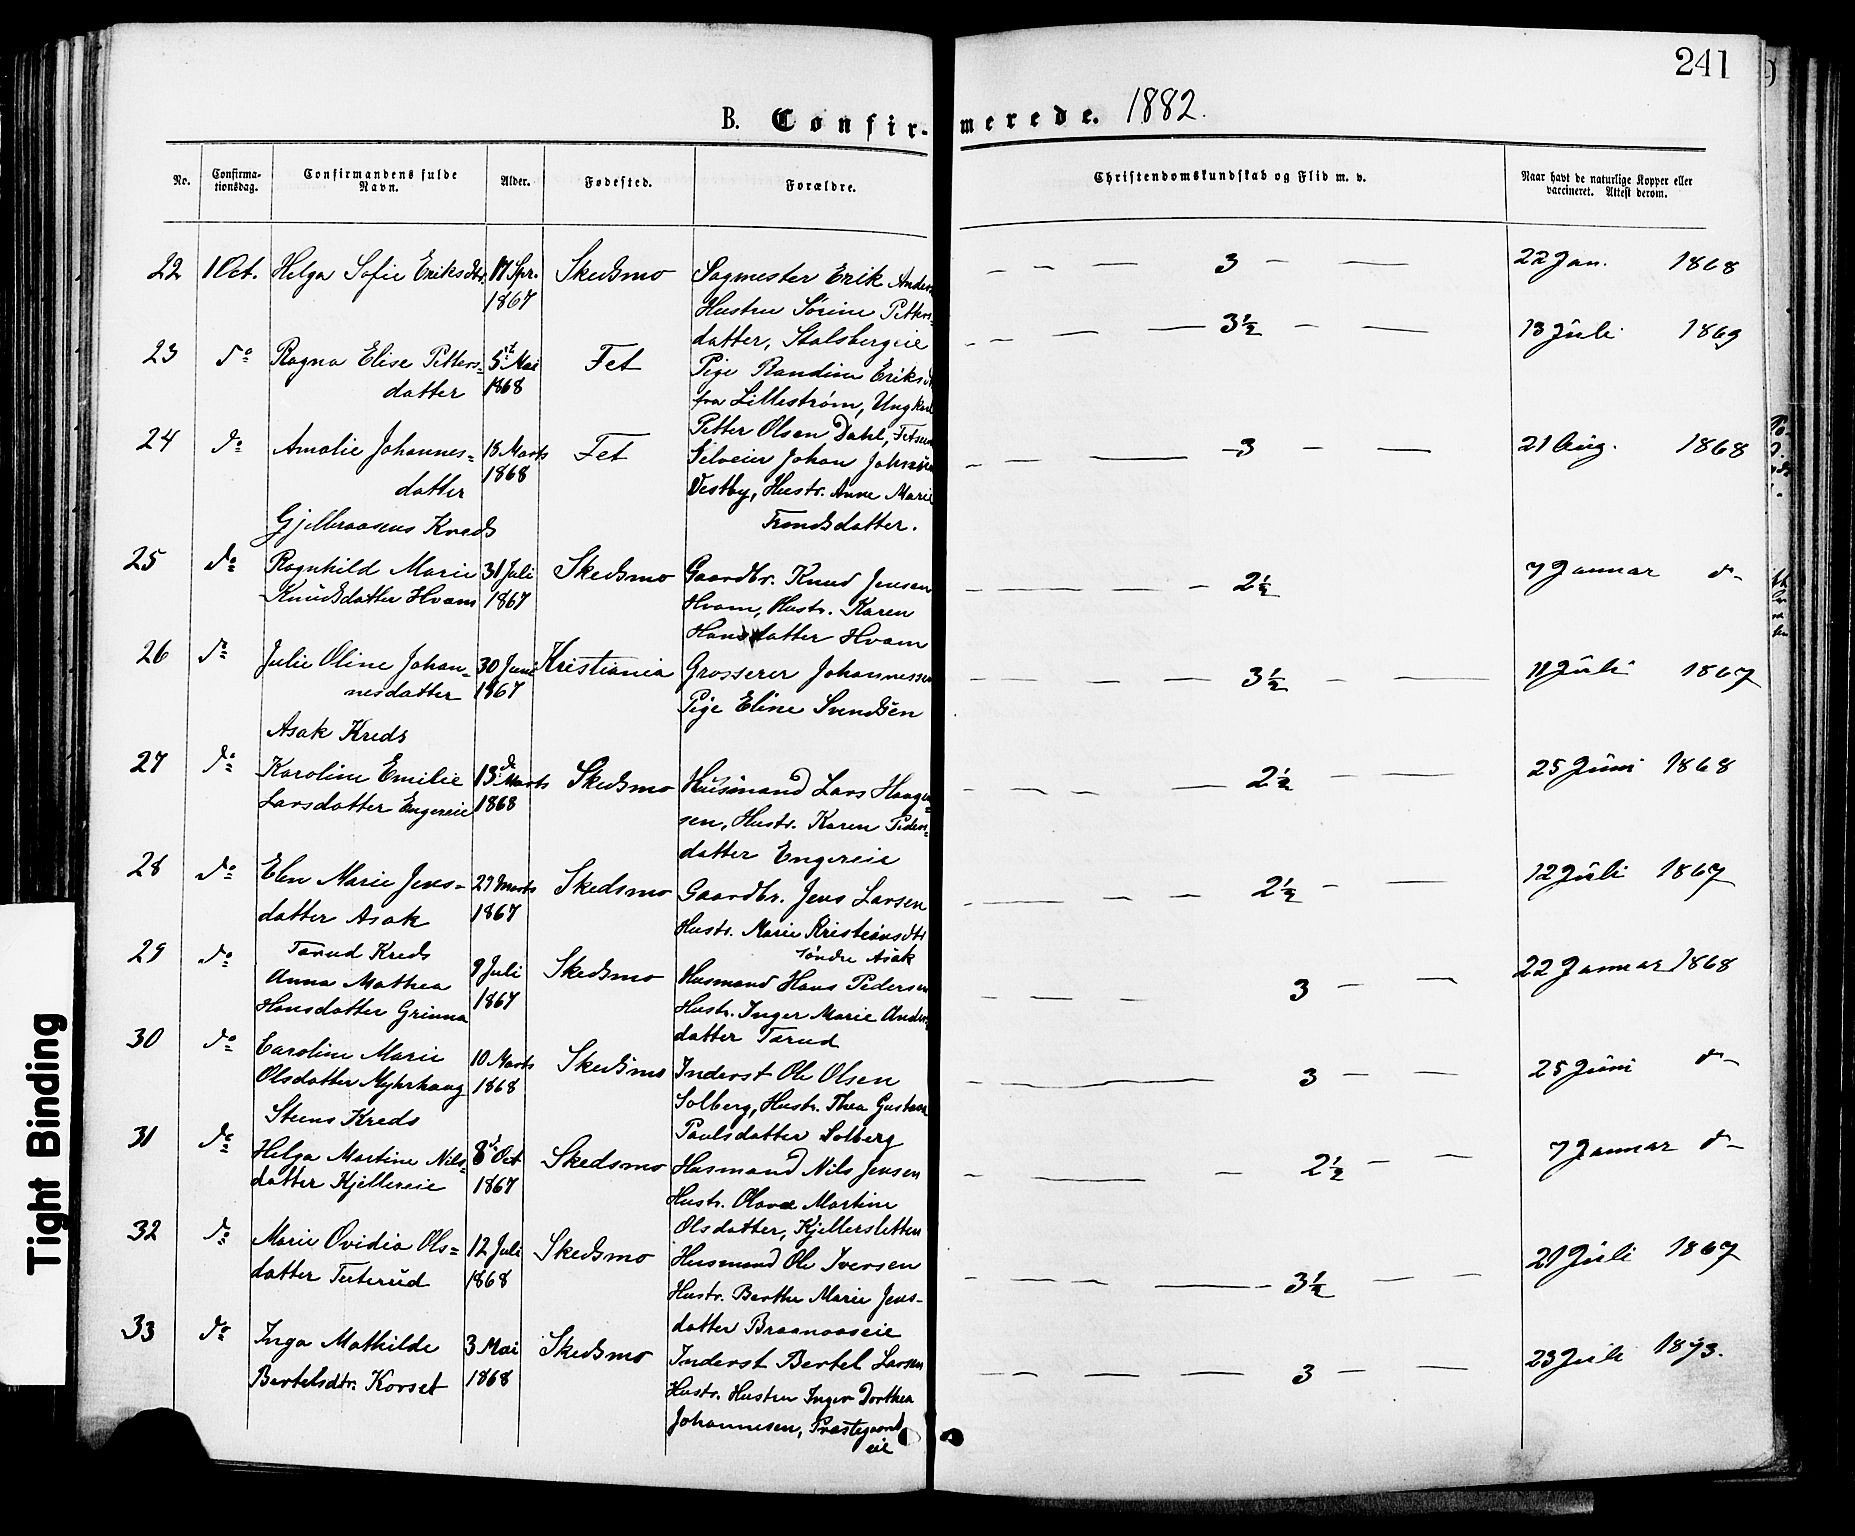 241
B. Confirmerede. 1882.
No. Confirma-tionsdag. Confirmandens fulde Navn. Alder. Fødested. Forældre. Christendomskundskab og Flid m. v. Naar havt de naturlige Kopper eller vaccineret. Attest derom.
22 1 Oct. Helga Sofie Eriksdtr. 17 Apr. Skedsmo Sagmester Erik Anders — — — 3 — — 22 Jan. 1868
1867 Hustru Sørine Petters-
datter, Stalsbergeie
23 do Ragna Elise Petters- 5 Mai Fet Pige Randine Eriksd — — — 3½ — — 13 Juli 1869
datter 1868 fra Lillestrøm, Ungkarl
Petter Olsen Dahl, Fetsund
24 do Amalie Johannes- 13 Marts Fet Johan — — — 3 — — 21 Aug. 1868
datter 1868 Vestby, Hustr. Anne Marie
datter.
Gjelleraasens Kreds
25 do Ragnhild Marie 31 Juli Skedsmo Gaardbr. Knud Jensen — — — 2½ 7 Januar do
Knudsdatter Hvam 1867 Hvam, Hustr. Karen
Hansdatter Hvam
26 do Julie Oline Johan- 30 Juni Kristiania Grosserer Johannessen — — — 3½ — — 11 Juli 1867
nesdatter 1867 Pige Eline Svendsen
Asak Kreds
27 do Karoline Emilie 13 Marts Skedsmo Husmand Lars Haagen- — — — 2½ — — 25 Juni 1868
Larsdatter Engereie 1868 sen, Hustr. Karen Peders-
datter Engereie
28 do Elen Marie Jens- 29 Marts Skedsmo Gaardbr. Jens Larsen — — — 2½ — — 12 Juli 1867
datter Asak 1867 Hustr. Marie Kristiansdtr
søndre Asak
Tærud Kreds
29 do Anna Mathea 9 Juli Skedsmo Husmand Hans Pedersen — — — 3 — — 22 Januar 1868
Hansdatter Grinna 1867 Hustr. Inger Marie Anders
datter Tærud
30 do Caroline Marie 10 Marts Skedsmo Inderst Ole Olsen — — — 3 — — 25 Juni do
Olsdatter Myhrhaug 1868 Solberg, Hustr. Thea Gustava
Paulsdatter Solberg
Steens Kreds
31 do Helga Martine Nils- 8 Oct Skedsmo Husmand Nils Jensen — — — 2½ — — 7 Januar do
datter Kjellereie 1867 Hustr. Olava Martine
Olsdatter, Kjellersletten
32 do Marie Ovidia Ols- 12 Juli Skedsmo Husmand Ole Iversen — — — 3½ — — 21 Juli 1867
datter Tuterud 1868 Hustr. Berthe Marie Jens-
datter Braanaaseie
33 do Inga Mathilde 3 Mai Skedsmo Inderst Bertel Larsen — — — 3 — — 23 Juli 1873.
Bertelsdtr. Korset 1868 Hustr. Hustru Inger Dorthea
Johannesen, Præstegaards
eie
Tight Binding